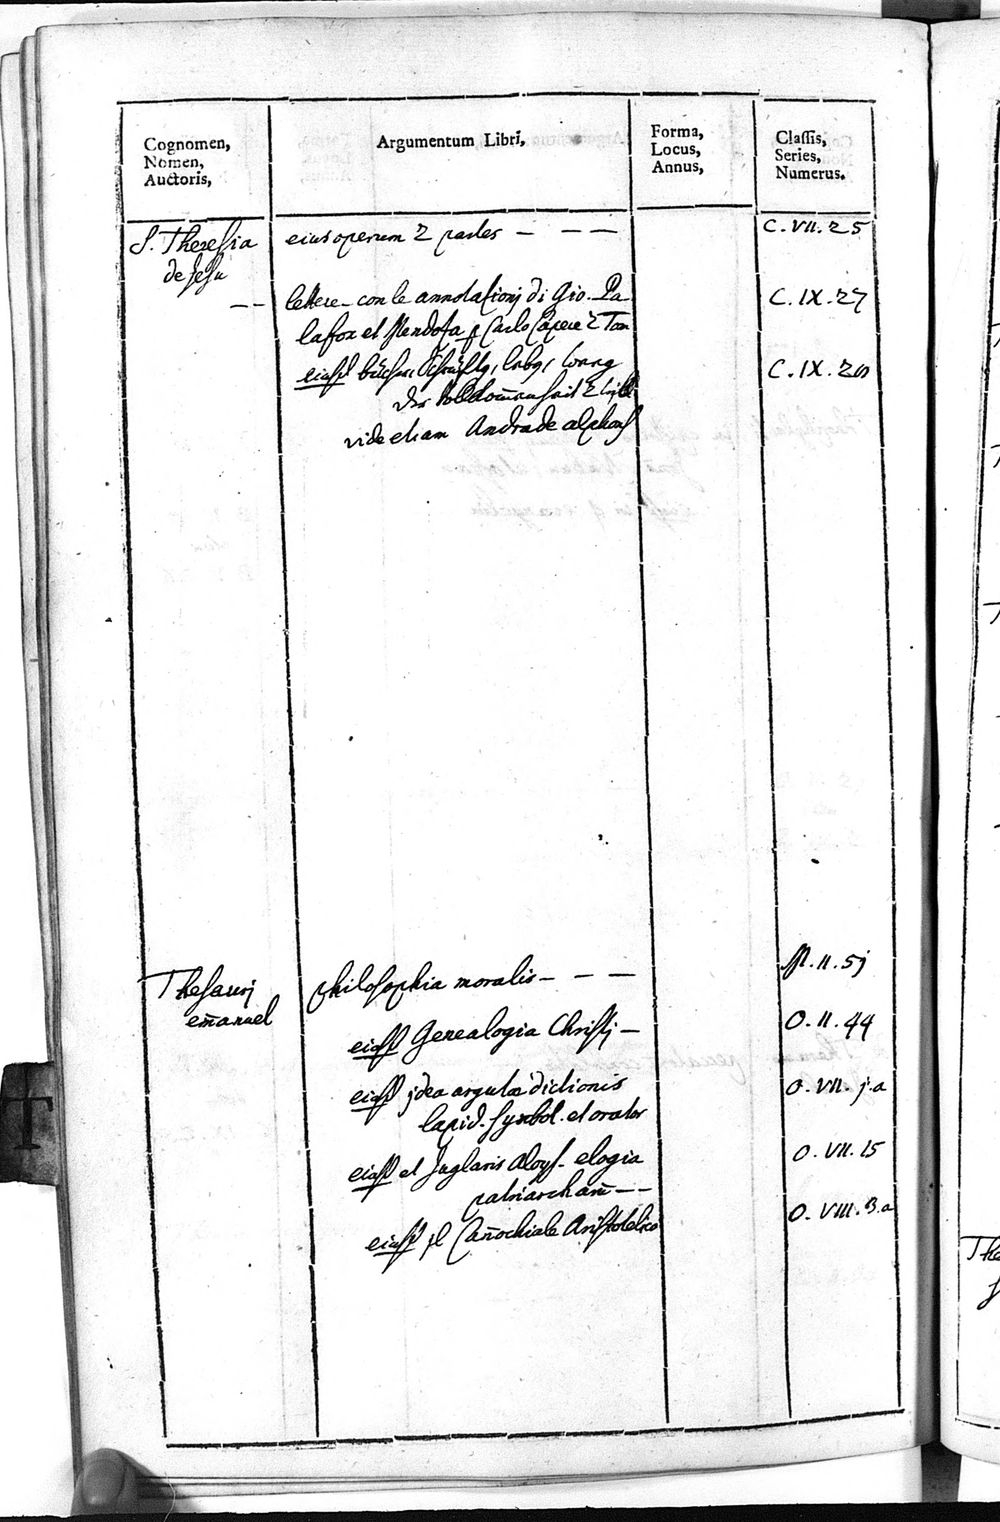 Cognomen,
Nomen,
Auctoris,
Argumentum Libri,
Forma,
Locus,
Annus,
Classis,
Series,
Numerus.
S. Theresia
de Jesu
eius operum 2 partes — — —
C. VII. 25
— —
lettere con le annotationj di Gio. Pa
lafox et Mendosa p Carlo Capece 2 Tom
C. IX. 27
eiusd bücher,
C. IX. 20
der Vollkommenheit 2
vide etiam Andrade alphons
Thesaurj
emanuel
philosophia moralis — — —
M. II. 5j
eiusd Genealogia Christj —
O. II. 44
eiusd jdea argutæ dictionis
O. VII. j.a
lapid. Symbol. et orator
eiusd et Juglaris Aloys. elogia
O. VII. 15
patriarcharū — —
eiusd jl Cañochiale Aristotelico
O. VIII. 3.a
T
The